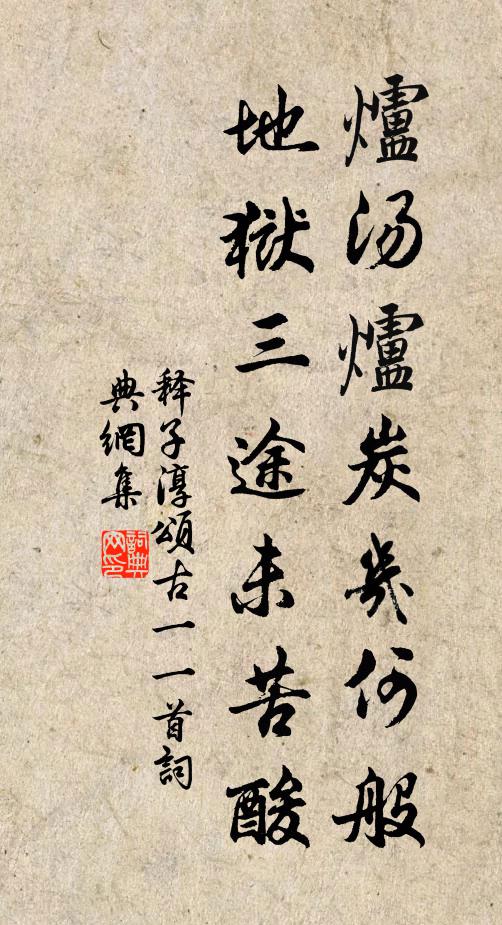 爐汤爐炭幾何般
地獄三途未苦酸
释子淳頌古一一首詞
典網集
詞典网印